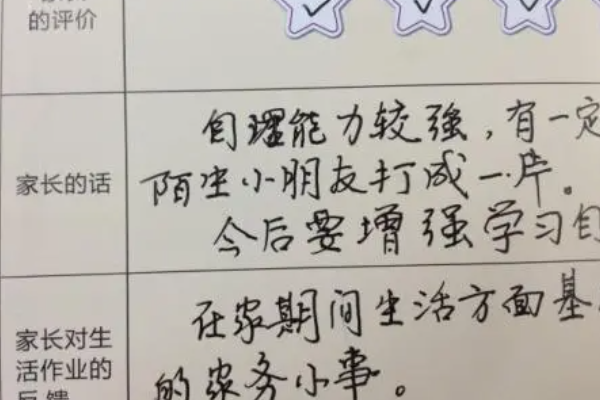 的评价
家长的话
自理能力较强，有一定
陌生小朋友打成一片。
今后要增强学习自
家长对生
活作业的
反馈
在家期间生活方面基
的家务小事。